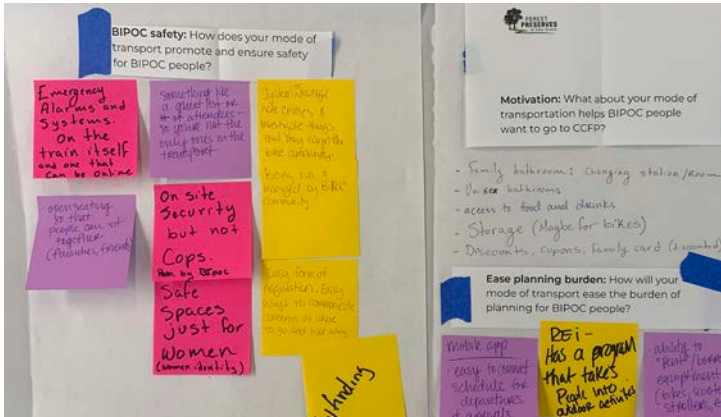 BIPOC safety: How does your mode of
transport promote and ensure safety
for BIPOC people?
Emergency
Alarms and
Systems.
On the
train itself
and one that
can be online
something like
a guest list or
# of attendees -
so you're not the
only ones in the
transport
hate crimes &
investigate things
that may harm the
community
Being run &
managed by BIPOC
community
- open seating
so that
people can sit
together
(families, friends)
On site
Security
but not
Cops.
Run by Bipoc
Safe
Spaces
just for
Women
(women identity)
Easy form of
navigation. Easy
ways to communicate
concerns or where
to go and
FOREST
PRESERVES
Motivation: What about your mode of
transportation helps BIPOC people
want to go to CCFP?
- Family bathrooms: Changing station/Room
- Unisex bathrooms
- access to food and drinks
- Storage (Maybe for bikes)
- Discounts, cupons, family card (discounted)
Ease planning burden: How will your
mode of transport ease the burden of
planning for BIPOC people?
mobile app
- easy to
schedule for
departures
& arrivals
REi -
Has a program
that takes
People into
outdoor activities
- ability to
"rent"/borrow
equiptment
(bikes,
strollers,